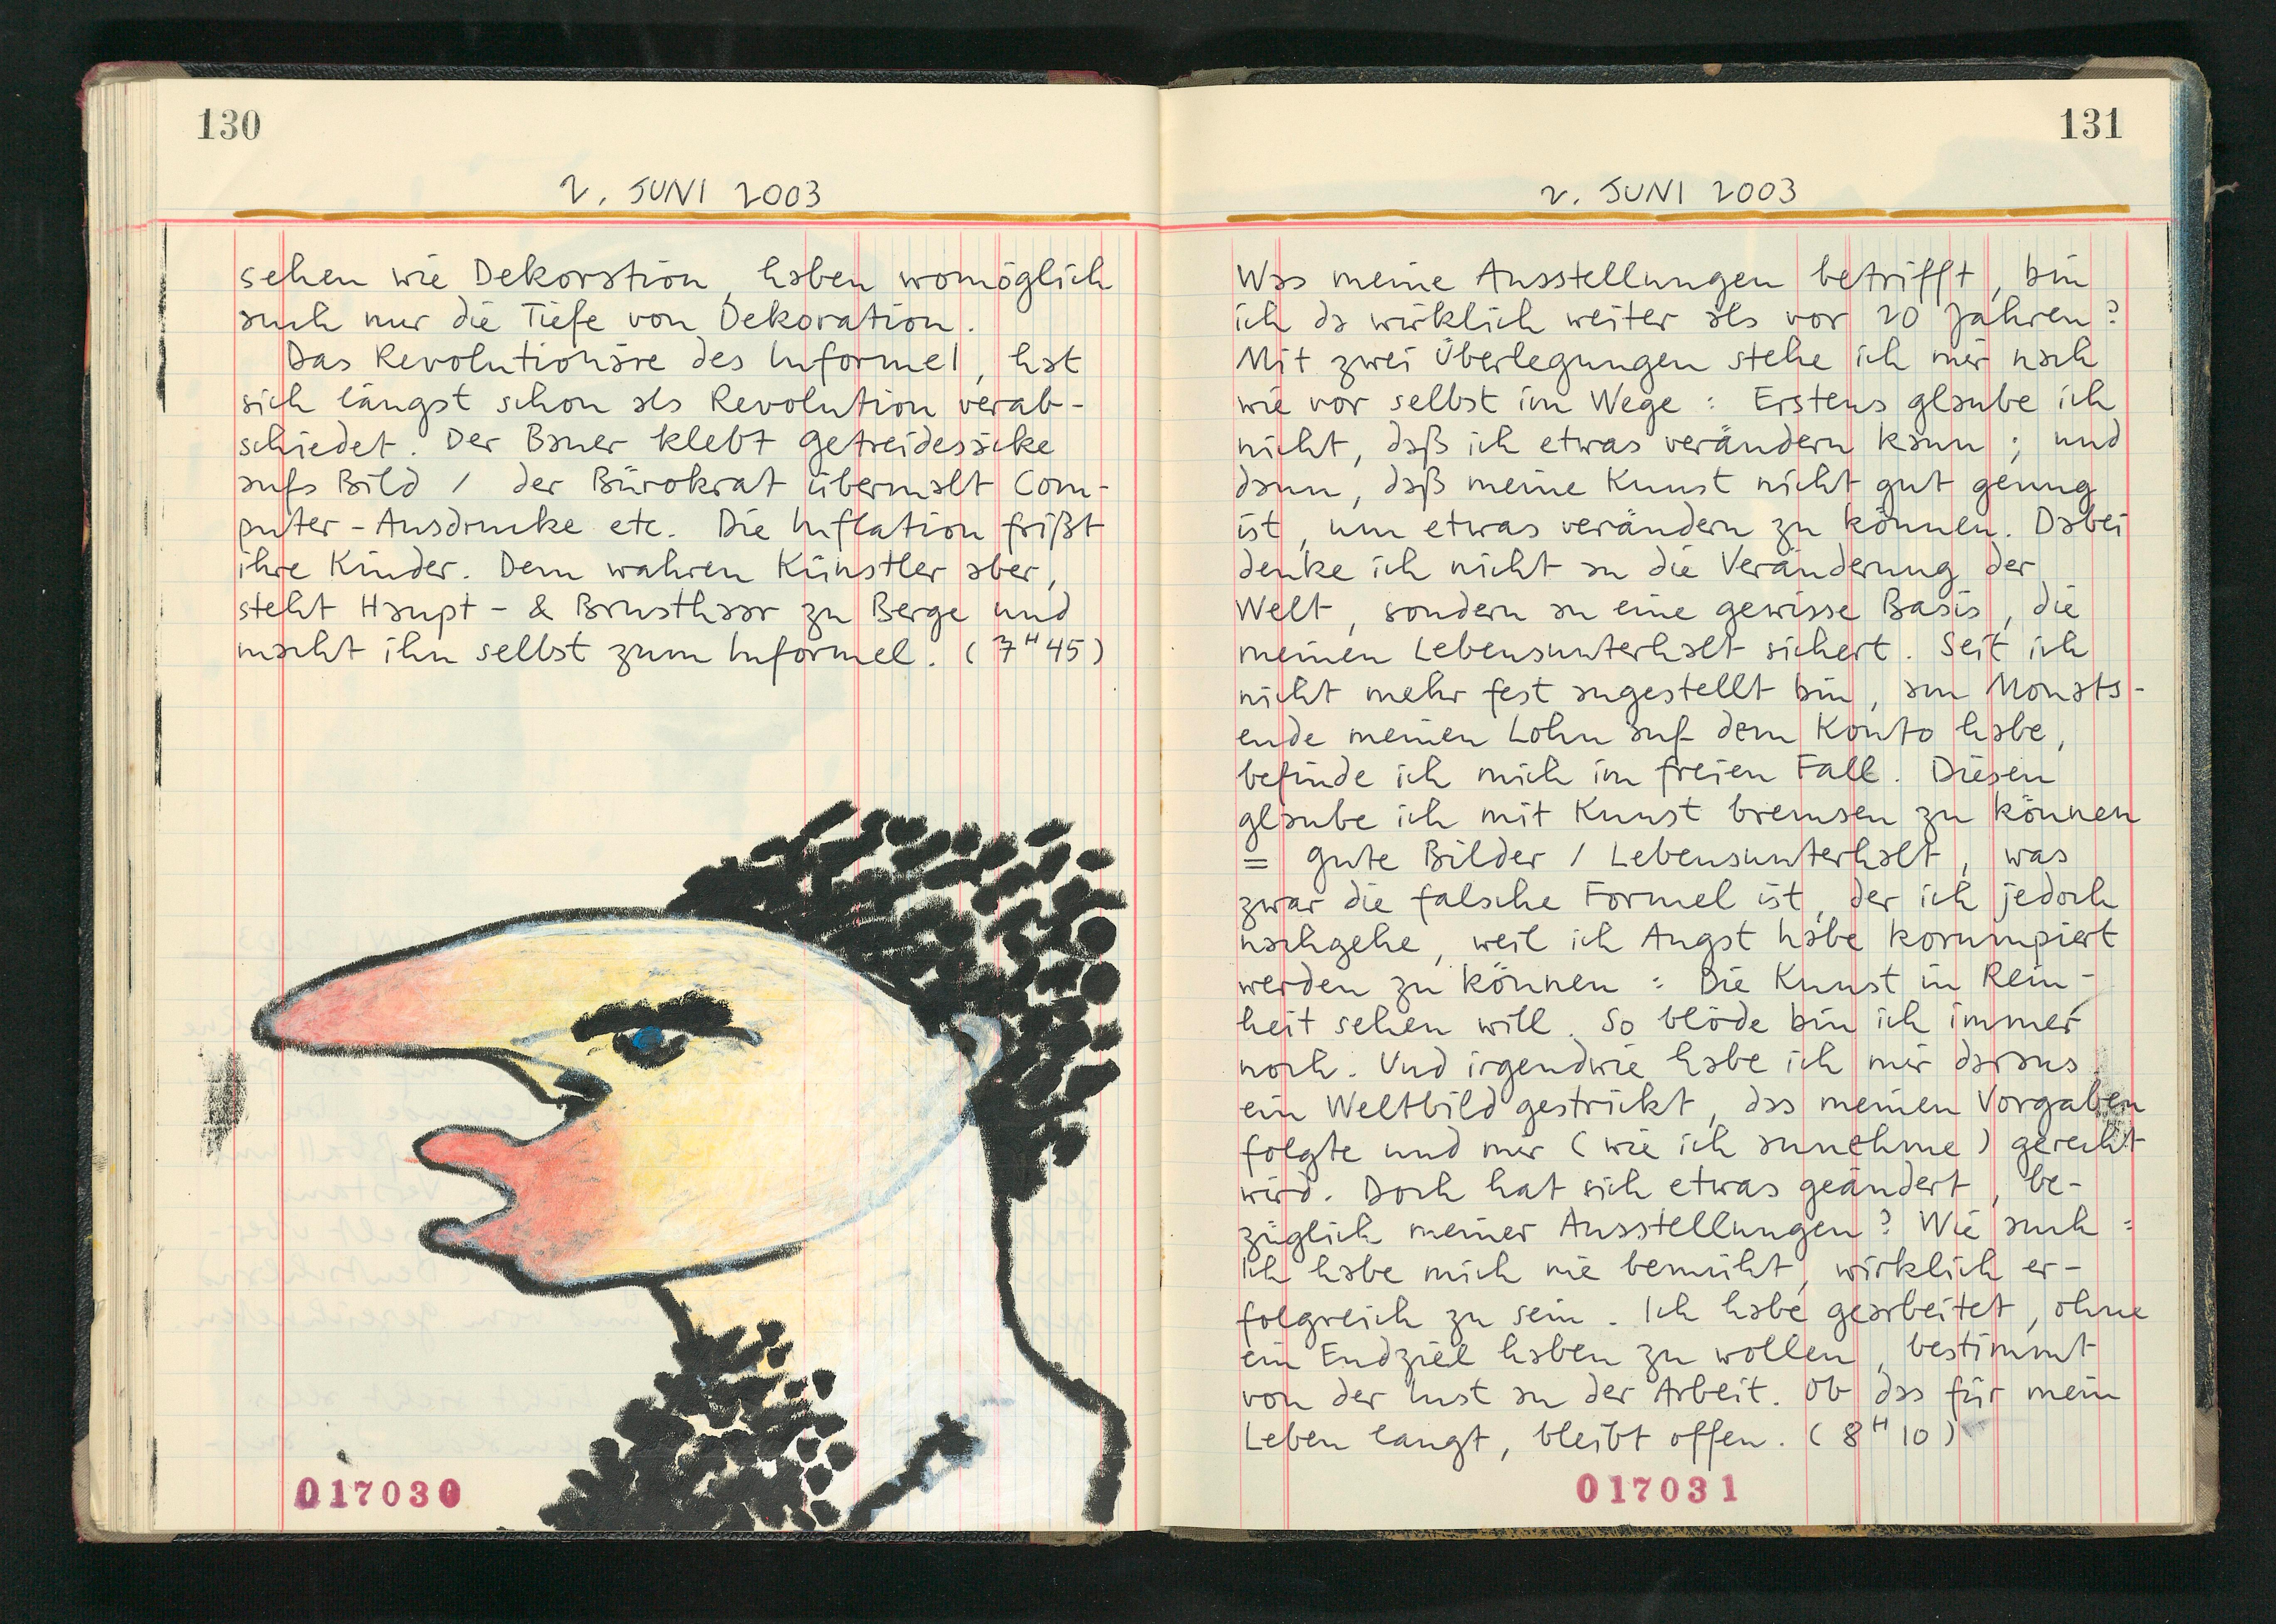 130
2. JUNI 2003
sehen wie Dekoration, haben womöglich
auch nur die Tiefe von Dekoration.
Das Revolutionäre des Informel, hat
sich längst schon als Revolution verab-
schiedet. Der Bauer klebt Getreidesäcke
aufs Bild / der Bürokrat übermalt Com-
puter-Ausdrucke etc. Die Inflation frißt
ihre Kinder. Dem wahren Künstler aber,
steht Haupt- & Brusthaar zu Berge und
macht ihn selbst zum Informel. (7H45)
017030
131
2. JUNI 2003
Was meine Ausstellungen betrifft, bin
ich da wirklich weiter als vor 20 Jahren?
Mit zwei Überlegungen stehe ich mir nach
wie vor selbst im Wege: Erstens glaube ich
nicht, daß ich etwas verändern kann; und
dann, daß meine Kunst nicht gut genug
ist, um etwas verändern zu können. Dabei
denke ich nicht an die Veränderung der
Welt, sondern an eine gewisse Basis, die
meinen Lebensunterhalt sichert. Seit ich
nicht mehr fest angestellt bin, am Monats-
ende meinen Lohn auf dem Konto habe,
befinde ich mich im freien Fall. Diesen
glaube ich mit Kunst bremsen zu können
= gute Bilder / Lebensunterhalt, was
zwar die falsche Formel ist, der ich jedoch
nachgehe, weil ich Angst habe korrumpiert
werden zu können: Die Kunst in Rein-
heit sehen will. So blöde bin ich immer
noch. Und irgendwie habe ich mir daraus
ein Weltbild gestrickt, das meinen Vorgaben
folgte und mir (wie ich annehme) gerecht
wird. Doch hat sich etwas geändert, be-
züglich meiner Ausstellungen? Wie auch:
Ich habe mich nie bemüht, wirklich er-
folgreich zu sein. Ich habe gearbeitet, ohne
ein Endziel haben zu wollen, bestimmt
von der Lust an der Arbeit. Ob das für mein
Leben langt, bleibt offen. (8H10)
017031